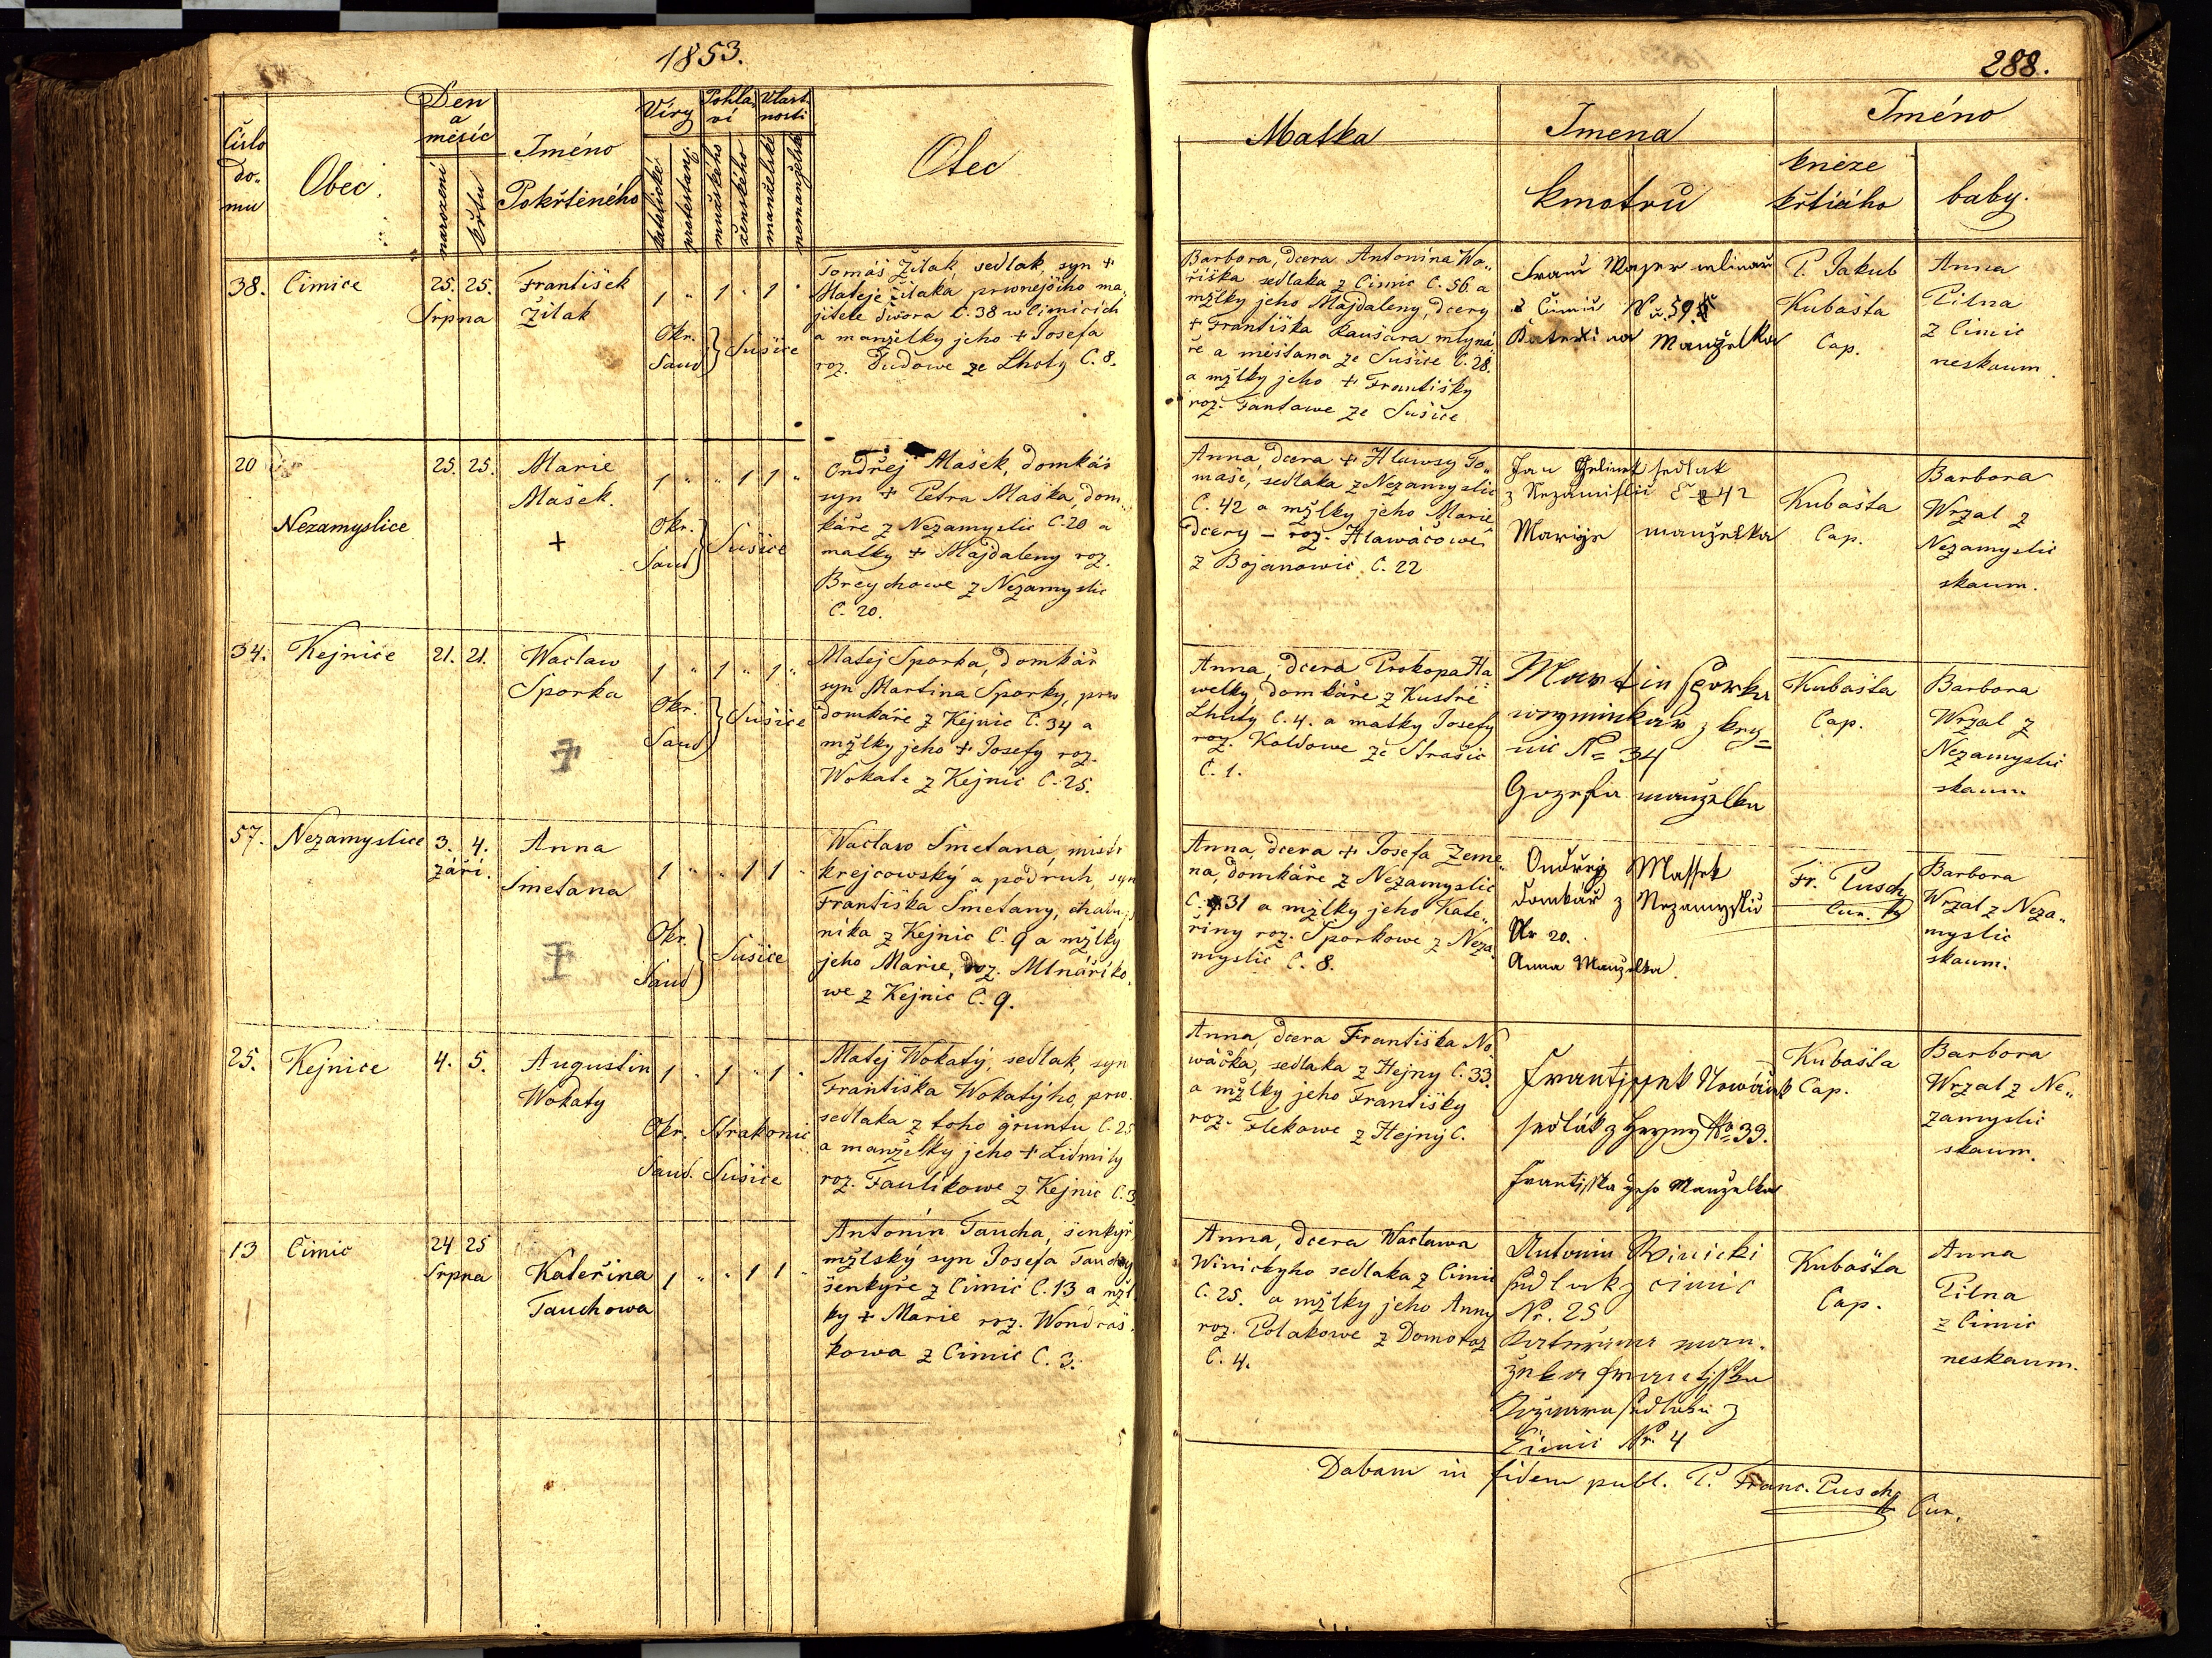 1853.
288.
Číslo
do-
mu
Obec.
Den
a
měsíc
narození
křtu
Jméno
Pokřteného
Víry
katolické
protestans.
Pohla-
ví
mužského
ženského
Vlast-
nosti
manželské
nemanželské
Otec
Matka
Jmena
kmotrů
Jméno
kněze
křtícího
baby.
38. Čimice 25. 25.
Srpna
František
Žilak
1 " 1 " 1 "
Okr.
Saud } Sušice
Tomáš Žilak, sedlak, syn +
Mateje Žilaka prwnejšího ma-
jitele dwora č. 38 w Čimicích
a manželky jeho + Josefa
roz. Dudowe ze Lhoty č. 8.
Barbora, dcera Antonína Wo-
říška sedlaka z Čimic č. 56. a
mžlky jeho Majdaleny, dcery
+ Františka Raušara mlyná-
ře a měštana ze Sušice č. 28.
a mžlky jeho + Františky
roz. Fantowe ze Sušice
Franc Majer mlinař
z Čimic N 59
Katerina Manželka
P. Jakub
Kubašta
Cap.
Anna
Pilna
z Čimic
neskaum.
20
Nezamyslice
25. 25.
Marie
Mašek.
+
1 " " 1 1 "
Okr.
Saud } Sušice
Ondřej Mašek, domkář
syn + Petra Maška, dom-
káře z Nezamyslic č. 20 a
matky + Majdaleny roz.
Breychowe z Nezamyslic
č. 20.
Anna, dcera + Hlawsy To-
maše, sedlaka z Nezamyslic
č. 42 a mžlky jeho Marie
dcery – roz. Hlawáčowé
z Bojanowic č. 22
Jan Jelinek sedlak
z Nezamislic č 42
Marige manželka
Kubašta
Cap.
Barbora
Wrzal z
Nezamyslic
skaum.
34. Kejnice 21. 21.
Waclaw
Sporka
1 " 1 " 1 "
Okr.
Saud } Sušice
Matej Sporka, domkář
syn Martina Sporky, prw
domkáře z Kejnic č. 34 a
mžlky jeho + Josefy roz.
Wokate z Kejnic č. 25.
Anna, dcera Prokopa Ha-
welky domkáře z Kustré
Lhoty č. 4. a matky Josefy
roz. Koldowe ze Strašic
č. 1.
Martin Sporka
weyminkař z Key=
nic No 34
Gozefa manželka
Kubašta
Cap.
Barbora
Wrzal z
Nezamyslic
skaum
57. Nezamyslice 3. 4.
září.
Anna
Smetana
1 " " 1 1 "
Okr.
Saud } Sušice
Waclaw Smetana, mistr
krejcowský a podruh, syn
Františka Smetany, chalup-
níka z Kejnic č. 9 a mžlky
jeho Marie, roz. Mlnáříko-
we z Kejnic č. 9.
Anna, dcera + Josefa Zeme-
na, domkáře z Nezamyslic
č. 31 a mžlky jeho Kate-
řiny roz. Sporkowe z Neza-
myslic č. 8.
Ondřej Massek
domkář z Nezamyslic
Nr 20.
Anna Manželka.
Fr. Pusch
Cur.
Barbora
Wrzal z Neza-
myslic
skaum.
25. Kejnice 4. 5.
Augustin
Wokaty
1 " 1 " 1 "
Okr. Strakonic
Saud. Sušice
Matej Wokatý, sedlak, syn
Františka Wokatýho, prw.
sedlaka z toho gruntu č. 25
a manželky jeho + Lidmily
roz. Faulikowe z Kejnic č. 3
Anna, dcera Františka No-
wáčka, sedlaka z Hejny č. 33.
a mžlky jeho Františky
roz. Flekowe z Hejný č.
Frantissek Nowáček
sedlák z Heyny No 33.
Frantisska geho Manželka
Kubašta
Cap.
Barbora
Wrzal z Ne-
zamyslic
skaum.
13 Čimic 24 25
Srpna
Kateřina
Tauchowa
1 " " 1 1 "
Antonín Taucha, šenkýř
mžlský syn Josefa Tauchy
šenkýře z Čimic č. 13 a mžl-
ky + Marie roz. Wondráš-
kowa z Čimic č. 3.
Anna, dcera Waclawa
Winickyho sedlaka z Čimic
č. 25. a mžlky jeho Anny
roz. Polakowe z Domoraz
č. 4.
Antonin Winicki
sedlak z cimic
Nr. 25
Katerina man-
želka Frantisska
sedlaka z
Čimic Nr. 4
Kubašta
Cap.
Anna
Pilna
z Čimic
neskaum.
Dabam in fidem publ. P. Franc. Pusch
Cur.